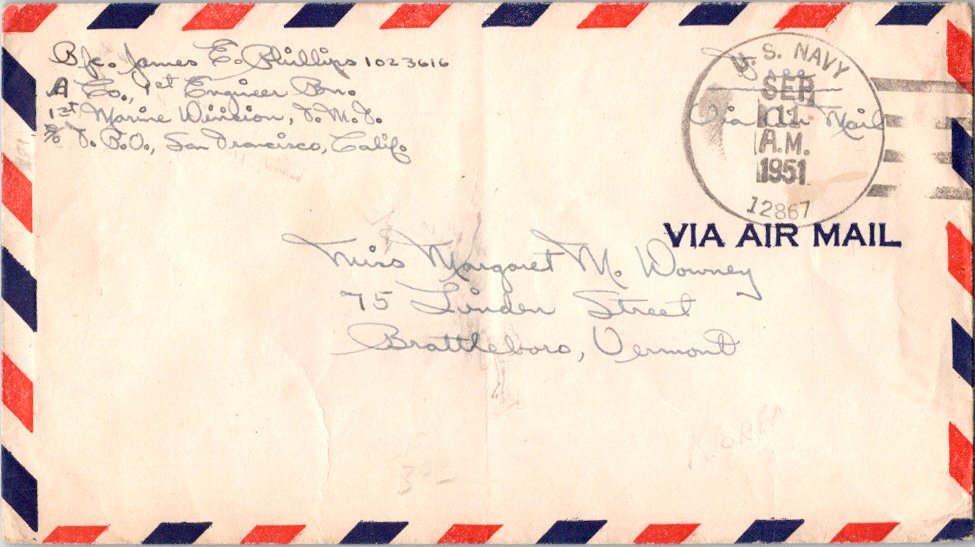 Pfc. James E. Phillips 1023616
A Co., 1st Engineer Bn.
1st Marine Division, F.M.F.
℅ F.P.O., San Francisco, Calif.
U. S. NAVY
SEP
11
A.M.
1951
12867
Free
Via Air Mail
VIA AIR MAIL
Miss Margaret M. Downey
75 Linden Street
Brattleboro, Vermont
KOREA
3⁰⁰